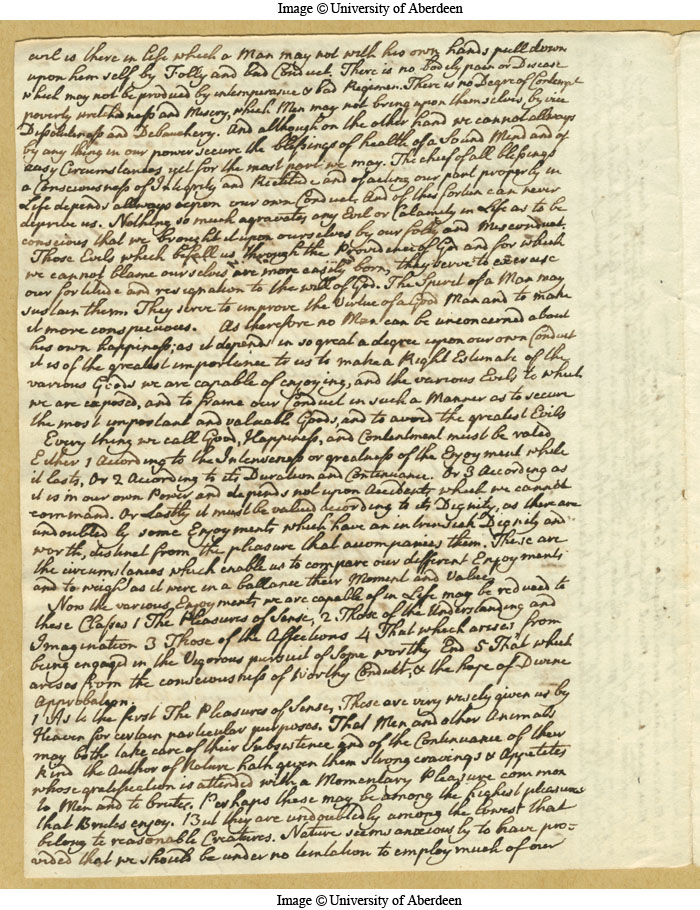 Image © University of Aberdeen
evil is there in Life which a Man may not with his own hands pull down
upon himself by Folly and bad Conduct. There is no bodily pain or Disease
which may not be produced by intemperance & bad Regimen. There is no Degree of Contempt
poverty wretchedness and Misery, which Men may not bring upon themselves by vice
Dissoluteness and Debauchery. And although on the other hand we cannot always
by any thing in our power secure the blessings of health of a Sound Mind and of
easy Circumstances yet for the most part we may. The chief of all blessings
a Consciousness of Integrity and Rectitude and of acting our part properly in
Life depends allways upon our own Conduct, And of this fortun can never
deprive us. Nothing so much agravates any Evil or Calamity in Life as to be
conscious that we brought it upon ourselves by our folly and Misconduct.
Those Evils which befall us through the Providence of God and for which
we cannot blame ourselves are more easily born, they serve to exercise
our fortitude and resignation to the will of God. The Spirit of a Man may
sustain them. They serve to improve the Virtue of a Good Man and to make
it more conspicuous. As therefore no Man can be unconcerned about
his own happiness; as it depends in so great a degree upon our own Conduct
it is of the greatest importance to us to make a Right Estimate of the
various Goods we are capable of enjoying, and the various Evils to which
we are exposed, and to frame our Conduct in such a Manner as to secure
the most important and valuable Goods, and to avoid the greatest Evils
Every thing we call Good, Happiness, and Contentment must be valed
Either 1 According to the Intenseness or greatness of the Enjoyment while
it lasts, Or 2 According to its Duration and Continuance. Or 3 According as
it is in our own Power and depends not upon Accidents which we cannot
command. Or Lastly it must be valued according to its Dignity, as there are
undoubtedly some Enjoyments which have an intrinsick Dignity and
worth, distinct from the pleasure that accompanies them. These are
the circumstances which enable us to compare our different Enjoyments
and to weigh as it were in a ballance their Moment and Value
Now the various Enjoyments we are capable of in Life may be reduced to
these Classes 1 The Pleasures of Sense, 2 Those of the Understanding and
Imagination 3 Those of the Affections 4 That which arises from
being engaged in the Vigorous pursuit of some worthy End 5 That which
arises from the consciousness of Worthy Conduct, & the hope of Divine
Approbation.
1 As to the first The Pleasures of Sense, These are very wisely given us by
Heaven for certain particular purposes. That Men and other Animals
may both take care of their Subsistence and of the Continuance of their
kind the Author of Nature hath given them strong cravings & Appetites
whose gratification is attended with a Momentary Pleasure common
to Men and to brutes. Perhaps these may be among the highest pleasures
that Brutes enjoy. But they are undoubtedly among the lowest that
belong to reasonable Creatures. Nature seems anxiously to have pro=
vided that we should be under no temtation to employ much of our
Image © University of Aberdeen